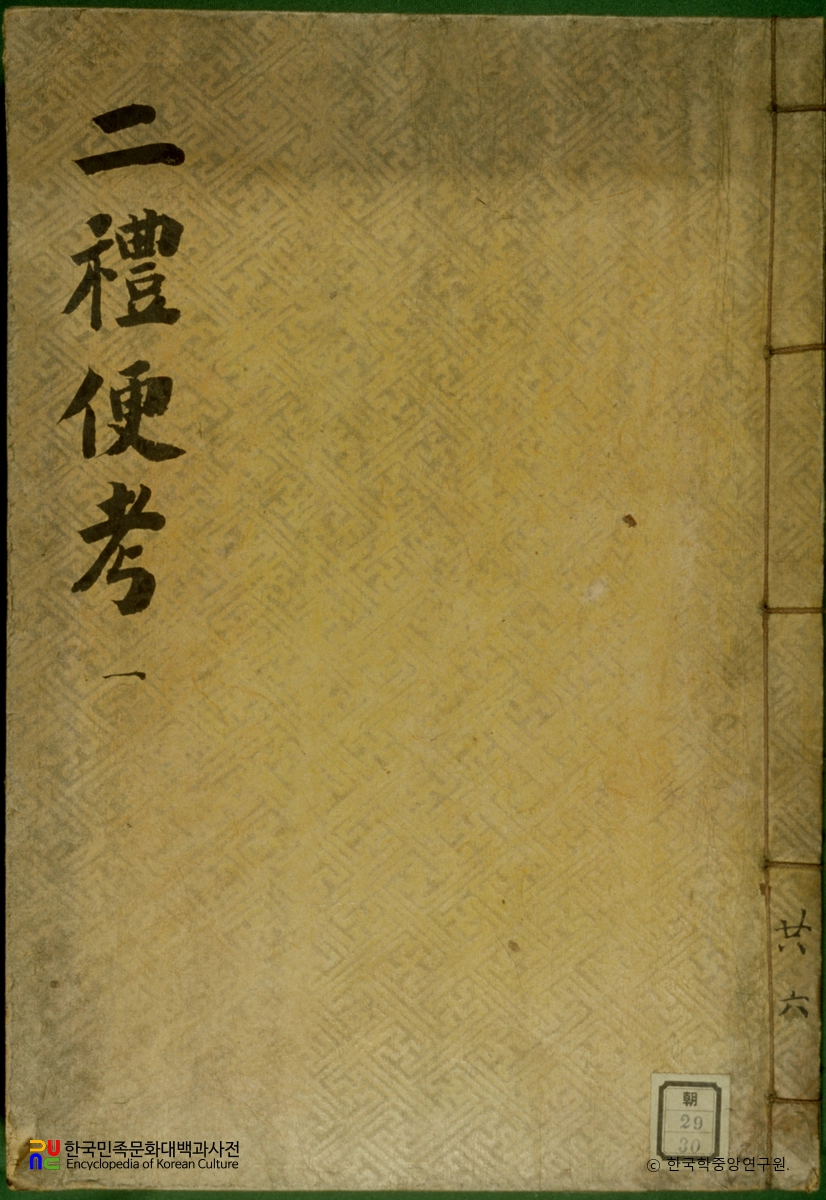 二禮便考
一
共六
朝
29
30
한국민족문화대백과사전
Encyclopedia of Korean Culture
© 한국학중앙연구원.